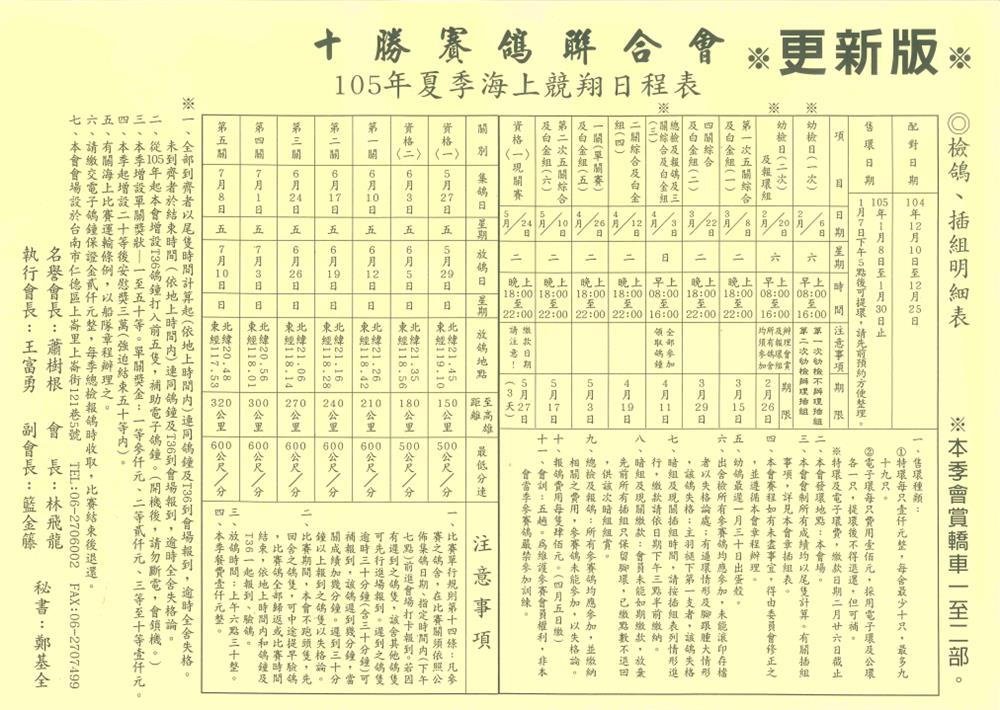 十勝賽鴿聯合會
105年夏季海上競翔日程表
※更新版※
◎檢鴿、插組明細表
※本季會賞轎車一至二部。
配對日期
104年12月10日至12月25日
售環日期
105年1月8日至1月30日止
1月7日下午5點後可提環，請先預約方便整理。
項目 日期 星期 時間 注意事項 期限
※幼檢日(一次) 2／6日 六 早上08:00至16:00 第一次幼檢不辦理插組 第二次幼檢日辦理插組
※幼檢日(二次)及報環組 2／20日 六 早上08:00至16:00 辦理會賞及報環組所有鴿會均須參加 2月26日
第一次五關綜合及白金組(一) 3／8日 二 晚上18:00至22:00 3月15日
四關綜合及白金組(二) 3／22日 二 晚上18:00至22:00 3月29日
※總檢及報鴿及三關綜合及白金組(三) 4／3日 日 早上08:00至16:00 全部參加領取鴿鐘 4月11日
二關綜合及白金組(四) 4／12日 二 晚上18:00至22:00 4月19日
一關(單關賽)及白金組(五) 4／26日 二 晚上18:00至22:00 5月3日
第二次五關綜合及白金組(六) 5／10日 二 晚上18:00至22:00 5月17日
資格(一)現關賽 5／24日 二 晚上18:00至22:00 繳款日期請注意！ 5月27日(3天)
一、售環種類：
①特環每只壹仟元整，每舍最少十只，最多九十九只。
②電子環每只費用壹佰元，採用電子環及公環各一只，提環後不得退還，但可補。
※特環及電子環費，繳款日期二月廿六日截止
二、本會發環地點：本會場。
三、本會會制所有成績均以尾隻計算。有關插組事項，詳見本會章程插組表。
四、本會賽程如有未盡事宜，得由委員會修正之，並遵循本會章程辦理。
五、幼鴿最遲一月三十日出蛋殼。
六、出舍檢所有參賽鴿均應參加，未能滾印存檔者以失格論處；有過環情形及腳踝腫大情形，該鴿失格；主羽換下第一支者，該鴿失格
七、暗組及現關插組時請，按插組表列情形進行，繳款請依日期下午三點半前繳納。
八、暗組及現關繳款：會員未能如期繳款，故彙先前所有插組只保留腳環，已繳點數不退回，供該次暗組組賞。
九、總檢及報鴿：所有參賽鴿均應參加，並繳納相關之費用，參賽鴿未能參加，以失格論。
十、報鴿費用每隻肆佰元。(四月五日繳)
十一、會訓：五趟。為維護參賽會員權利，非本會當季參賽鴿嚴禁參加訓練。
關別 集鴿日 星期 放鴿日 星期 放鴿地點 至高雄距離 最低分速
資格(一) 5月27日 五 5月29日 日 北緯21.45 東經119.10 150公里 500公尺／分
資格(二) 6月3日 五 6月5日 日 北緯21.35 東經118.56 180公里 500公尺／分
第一關 6月10日 五 6月12日 日 北緯21.26 東經118.42 210公里 600公尺／分
第二關 6月17日 五 6月19日 日 北緯21.16 東經118.28 240公里 600公尺／分
第三關 6月24日 五 6月26日 日 北緯21.06 東經118.14 270公里 600公尺／分
第四關 7月1日 五 7月3日 日 北緯20.56 東經118.01 300公里 600公尺／分
第五關 7月8日 五 7月10日 日 北緯20.48 東經117.53 320公里 600公尺／分
注意事項
一、比賽單行規則第十四條：凡參賽之鴿舍，在比賽關須依照公佈集鴿日期、指定時間內(下午七點)前進會場打卡報到。若因有遲到之鴿隻，該舍其他鴿隻可先行進場報到。遲到之鴿隻逾時三十分鐘(含)三十分鐘可補報到，該鴿遲到幾分鐘，當關成績加幾分鐘。遲到三十分鐘以上報到之鴿隻以失格論。
二、比賽期間，本會不跑頭隻，先回舍之鴿隻，可中途提早驗鴿，比賽鴿全部歸返或比賽時間結束，依地上時間內和鴿鐘及T36一起報到、驗鴿。
三、放鴿時間：上午六點三十整。
四、本季餐費壹仟元整。
※一、全部到齊者以尾隻時間計算起(依地上時間內)連同鴿鐘及T36報到，逾時全舍失格。
未到齊者於結束時間(依地上時間內)連同鴿鐘及T36到會場報到，逾時全舍失格論。
二、從105年起本會增設T36鴿鐘打入前五隻，補助電子鴿鐘。(開機後，請勿斷電，會鎖機。)
三、本季增設單關獎狀—一至五十等。單關獎金：一等參仟元、二等貳仟元、三等至十等壹仟元。
四、本季起增設二十等後安慰獎三萬(強迫結束五十等內)。
五、有關海上比賽運輸條例，以船隊章程辦理之。
六、請繳交電子鴿鐘保證金貳仟元整，每季總檢報鴿時收取，比賽結束後退還。
七、本會會場設於台南市仁德區上崙里上崙街121巷5號 TEL:06-2706002 FAX:06-2707499
名譽會長：蕭樹根 會長：林飛龍
執行會長：王富勇 副會長：藍金籐 秘書：鄭基全